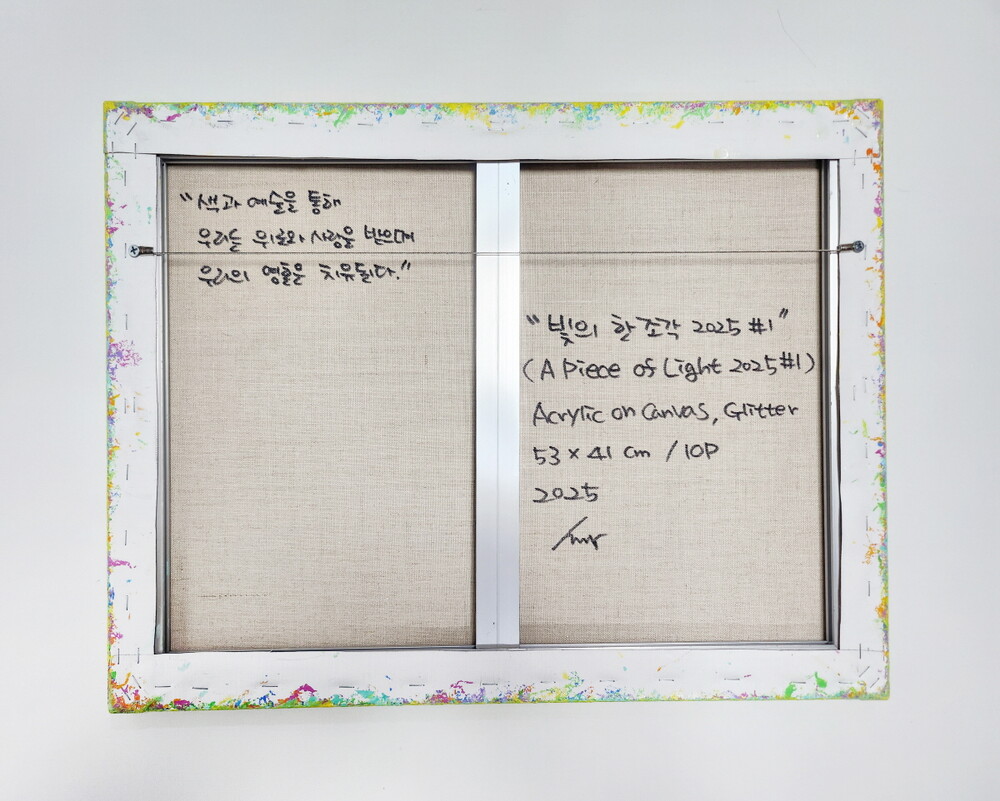 "색과 예술을 통해
우리는 위로와 사랑을 받으며
우리의 영혼은 치유된다."
"빛의 한 조각 2025 #1"
(A Piece of Light 2025 #1)
Acrylic on Canvas, Glitter
53 × 41 cm / 10P
2025